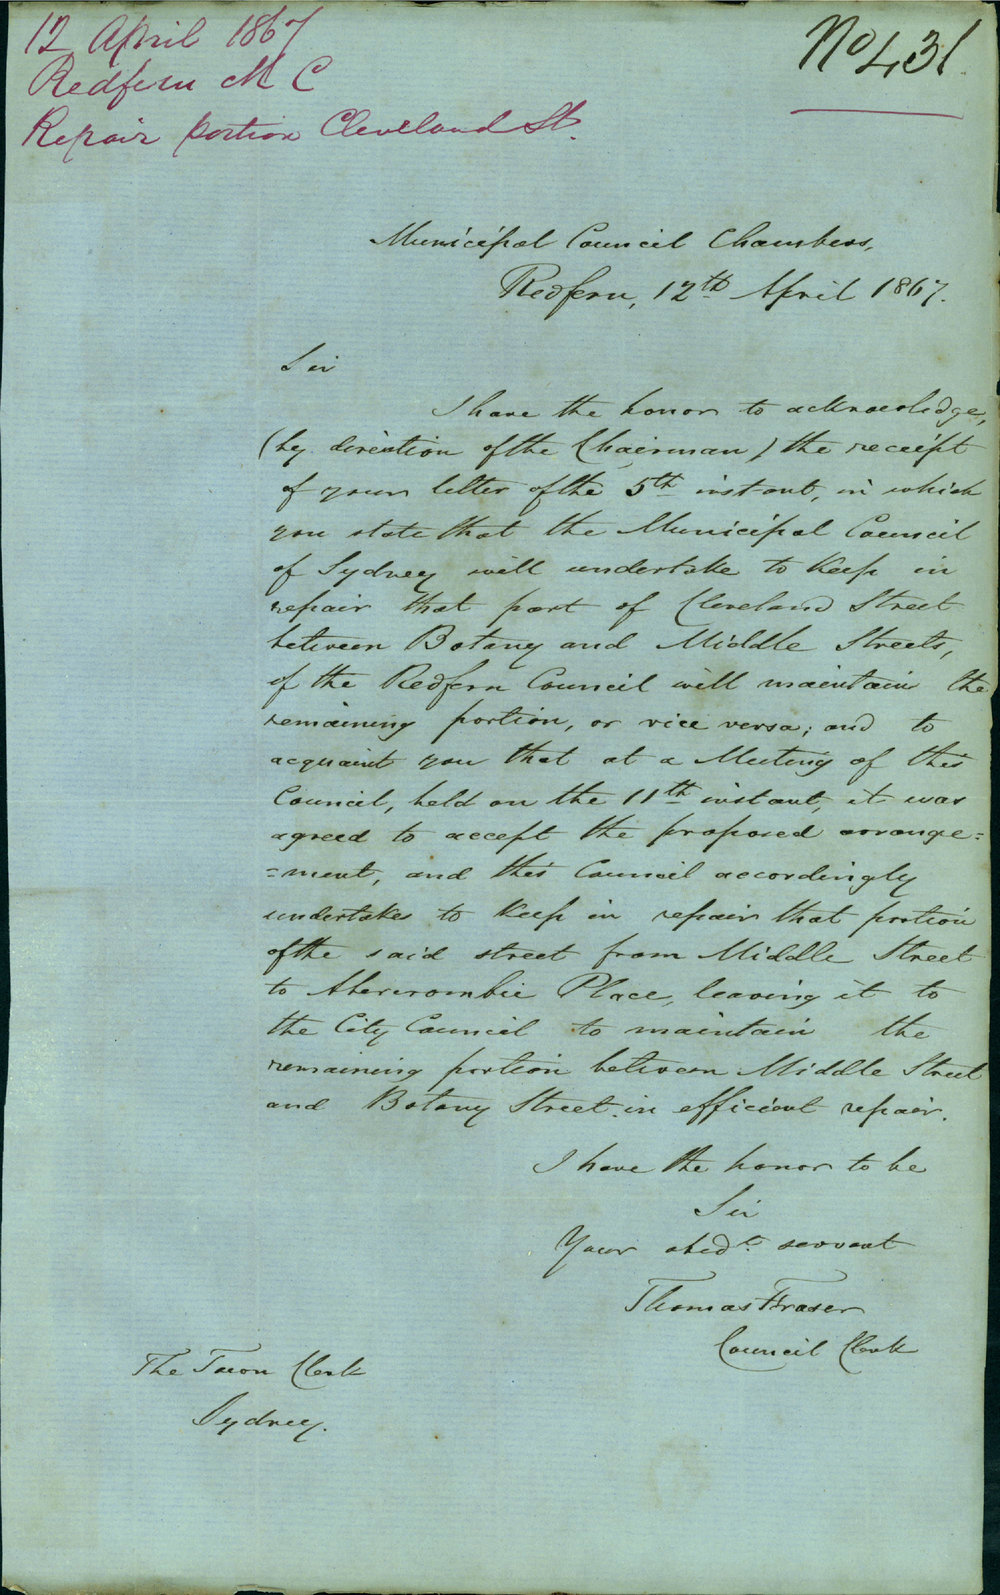 12 April 1867
Redfern M C
Repair portion Cleveland St.
No 431
Municipal Council Chambers,
Redfern, 12th April 1867.
Sir
I have the honor to acknowledge,
(by direction of the Chairman) the receipt
of your letter of the 5th instant, in which
you state that the Municipal Council
of Sydney will undertake to keep in
repair that part of Cleveland Street
between Botany and Middle Streets,
if the Redfern Council will maintain the
remaining portion, or vice versa; and to
acquaint you that at a Meeting of this
Council, held on the 11th instant, it was
agreed to accept the proposed arrange=
=ment, and this Council accordingly
undertakes to keep in repair that portion
of the said street from Middle Street
to Abercrombie Place, leaving it to
the City Council to maintain the
remaining portion between Middle Street
and Botany Street in efficient repair.
I have the honor to be
Sir
Your obedt. servant
Thomas Fraser
Council Clerk
The Town Clerk
Sydney.